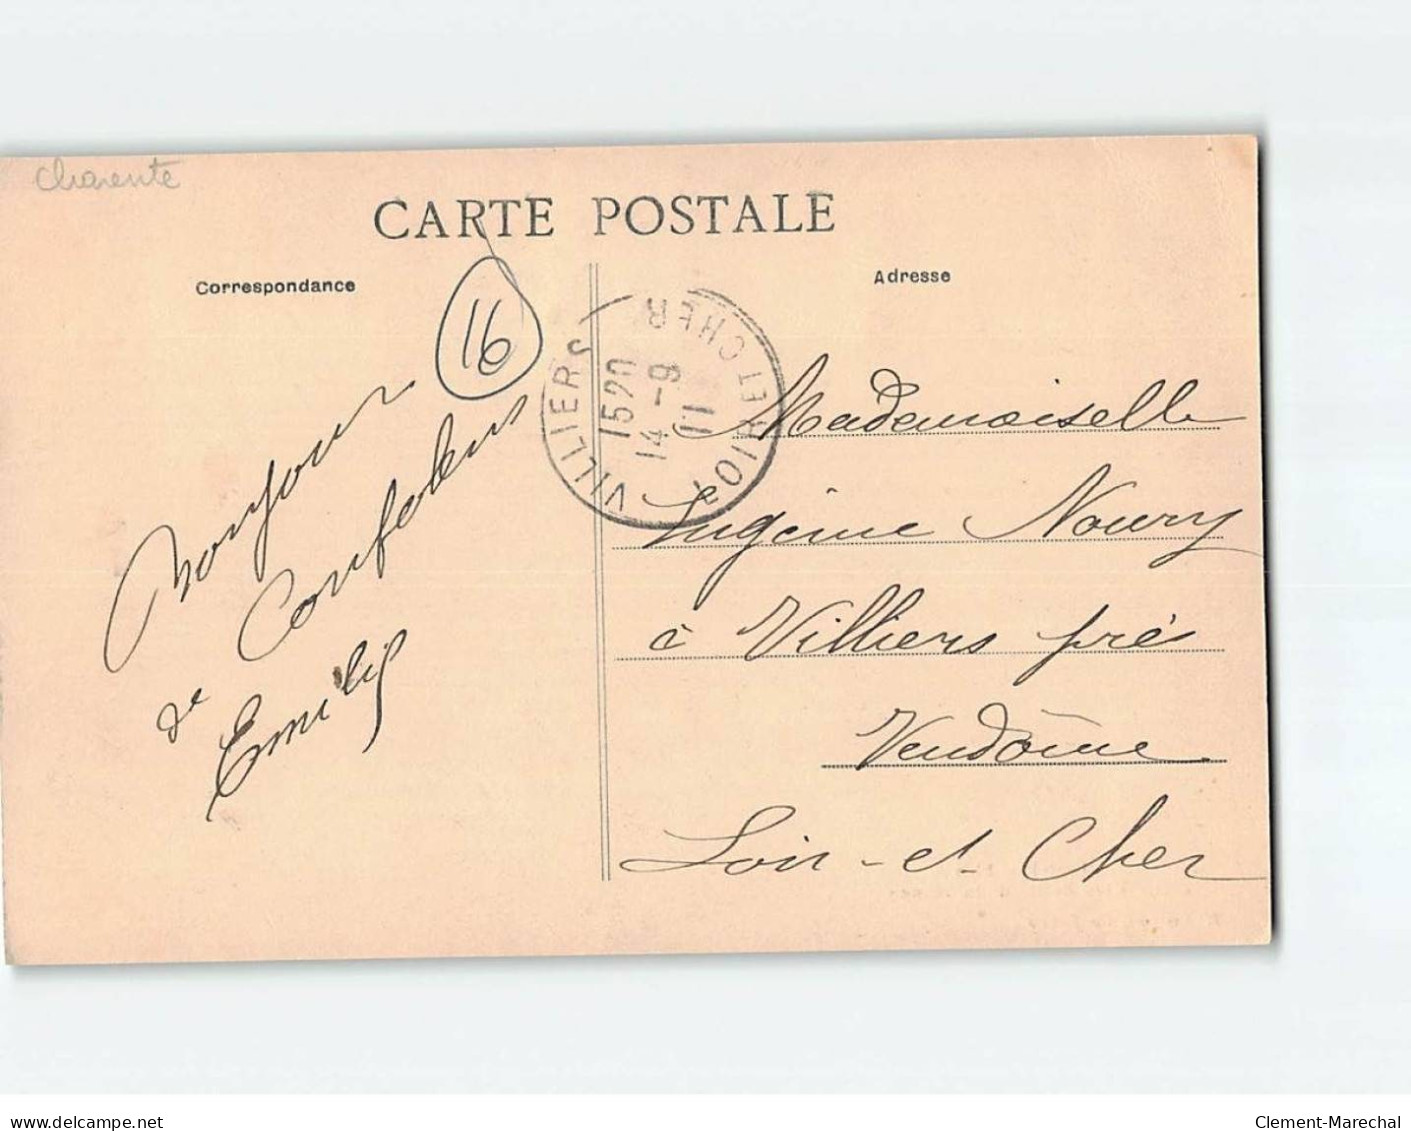 Charente
CARTE POSTALE
Correspondance
Adresse
16
Bonjour
de Confolens
Emilie
VILLIERS
LOIR ET CHER
1520
14-9
11
Mademoiselle
Eugénie Noury
à Villiers pré
Vendôme
Loir-et-Cher
www.delcampe.net
Clement-Marechal